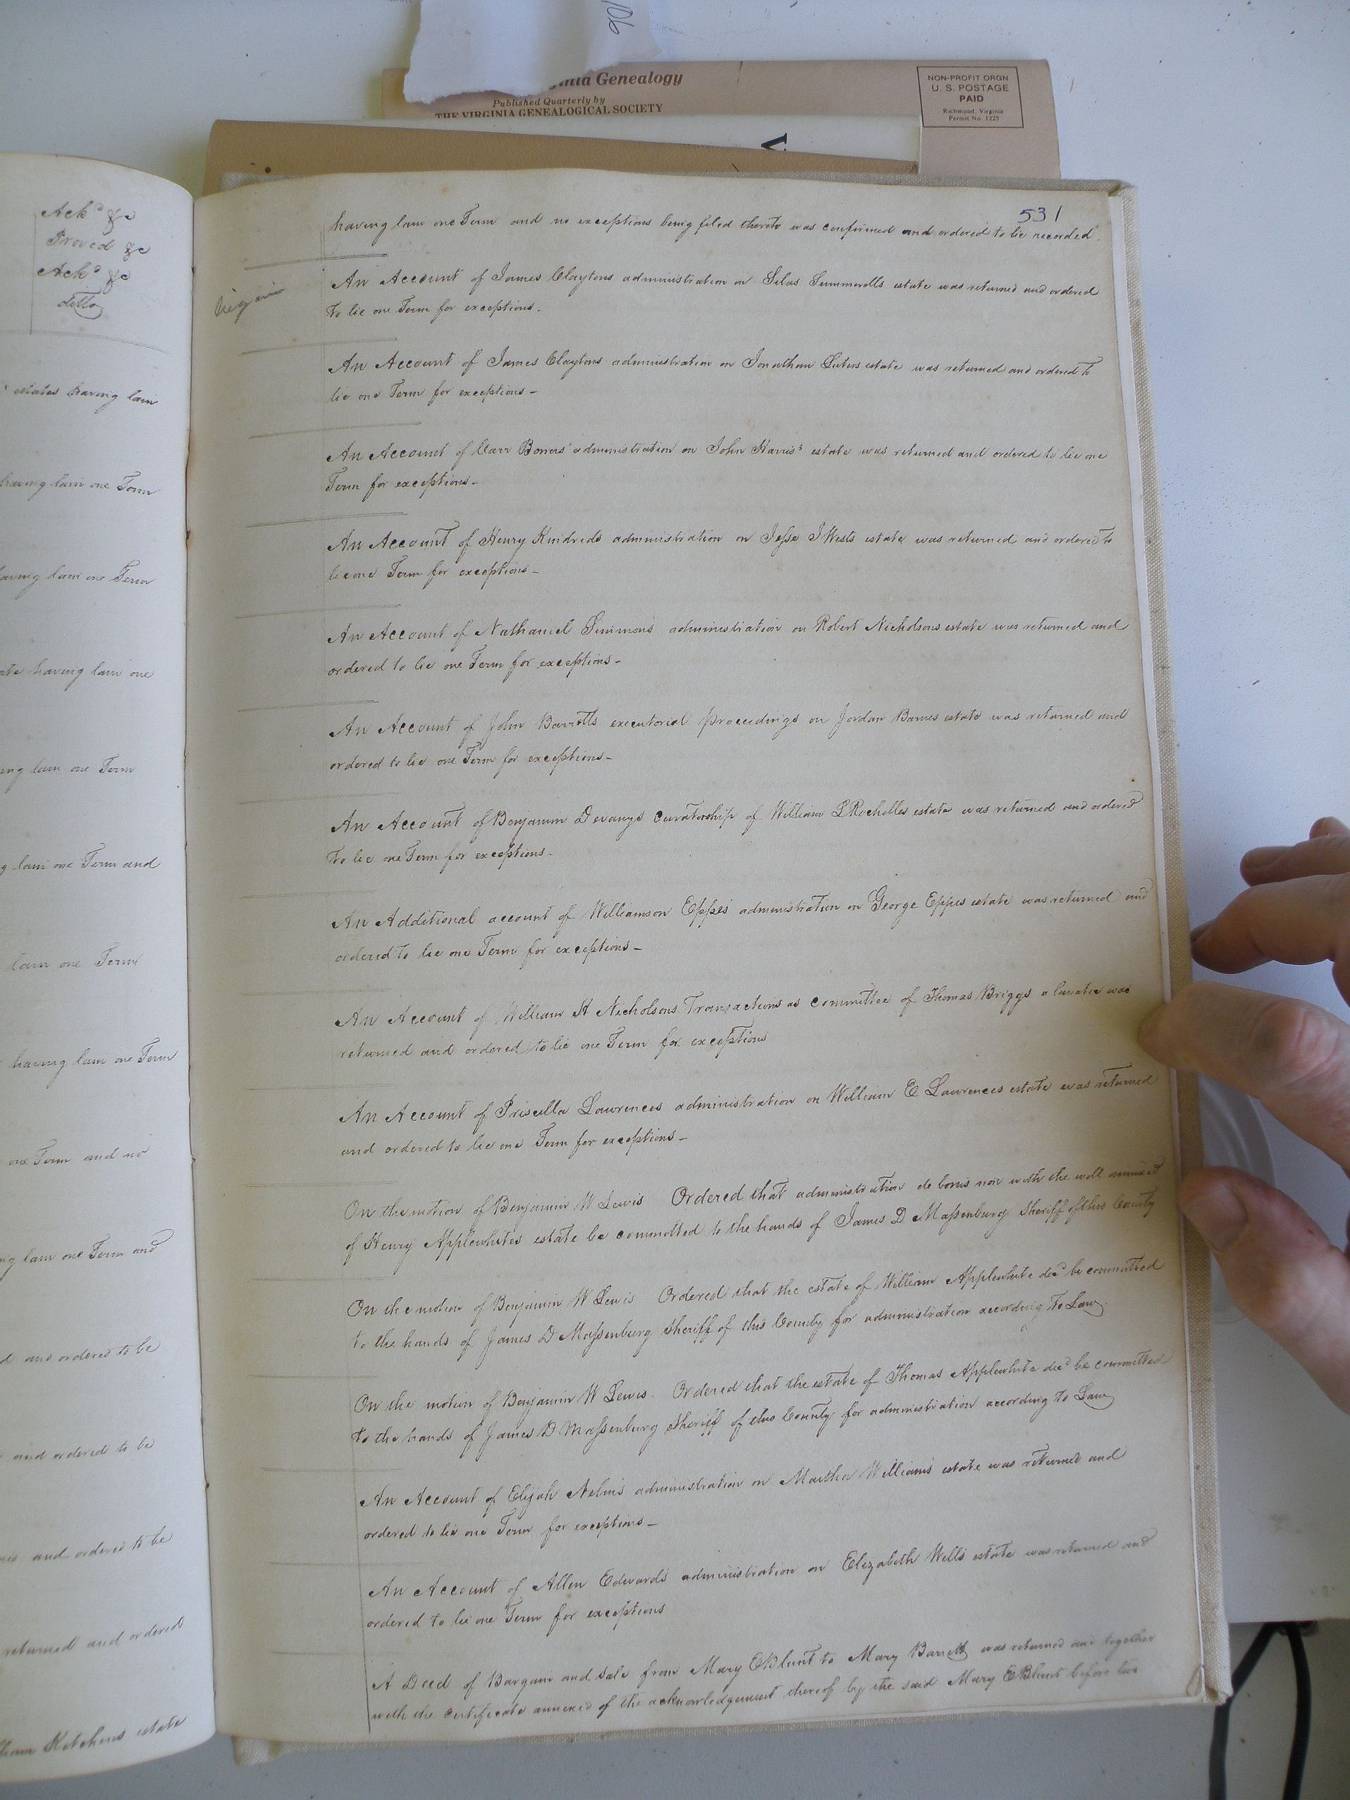 106
Virginia Genealogy
Published Quarterly by
THE VIRGINIA GENEALOGICAL SOCIETY
NON-PROFIT ORGN
U. S. POSTAGE
PAID
Richmond, Virginia
Permit No. 1225
V
Ackd &c
Proved &c
Ackd &c
ditto
estates having lain
having lain one Term
having lain one Term
having lain one
lain one Term
lain one Term and
lain one Term
having lain one Term
one Term and no
lain one Term and
and ordered to be
and ordered to be
and ordered to be
returned and ordered
Ketchens estate
531
having lain one Term and no exceptions being filed thereto was confirmed and ordered to be recorded.
An Account of James Claytons administration on Silas Summerells estate was returned and ordered
to lie one Term for exceptions.
An Account of James Claytons administration on Jonathan Luters estate was returned and ordered to
lie one Term for exceptions —
An Account of Carr Bowers' administration on John Harris's estate was returned and ordered to lie one
Term for exceptions —
An Account of Henry Kindreds administration on Jesse J Wests estate was returned and ordered to
lie one Term for exceptions —
An Account of Nathaniel Simmons administration on Robert Nicholsons estate was returned and
ordered to lie one Term for exceptions —
An Account of John Barretts executorial proceedings on Jordan Barnes estate was returned and
ordered to lie one Term for exceptions —
An Account of Benjamin Devanys curatorship of William L Rochelles estate was returned and ordered
to lie one Term for exceptions —
An Additional account of Williamson Eppes' administration on George Eppes estate was returned and
ordered to lie one Term for exceptions —
An Account of William H Nicholsons Transactions as committee of Thomas Briggs a lunatic was
returned and ordered to lie one Term for exceptions
An Account of Priscilla Lawrences administration on William E Lawrences estate was returned
and ordered to lie one Term for exceptions —
On the motion of Benjamin W Lewis Ordered that administration de bonis non with the will annexed
of Henry Applewhites estate be committed to the hands of James D Massenburg Sheriff of this County
On the motion of Benjamin W Lewis Ordered that the estate of William Applewhite decd be committed
to the hands of James D Massenburg Sheriff of this County for administration according to Law.
On the motion of Benjamin W Lewis. Ordered that the estate of Thomas Applewhite decd be committed
to the hands of James D Massenburg Sheriff of this County for administration according to Law
An Account of Elijah Nelms administration on Martha Williams estate was returned and
ordered to lie one Term for exceptions —
An Account of Allen Edwards administration on Elizabeth Wells estate was returned and
ordered to lie one Term for exceptions
A Deed of Bargain and Sale from Mary E Blunt to Mary Barrett was returned and together
with the certificate annexed of the acknowledgement thereof by the said Mary E Blunt before two